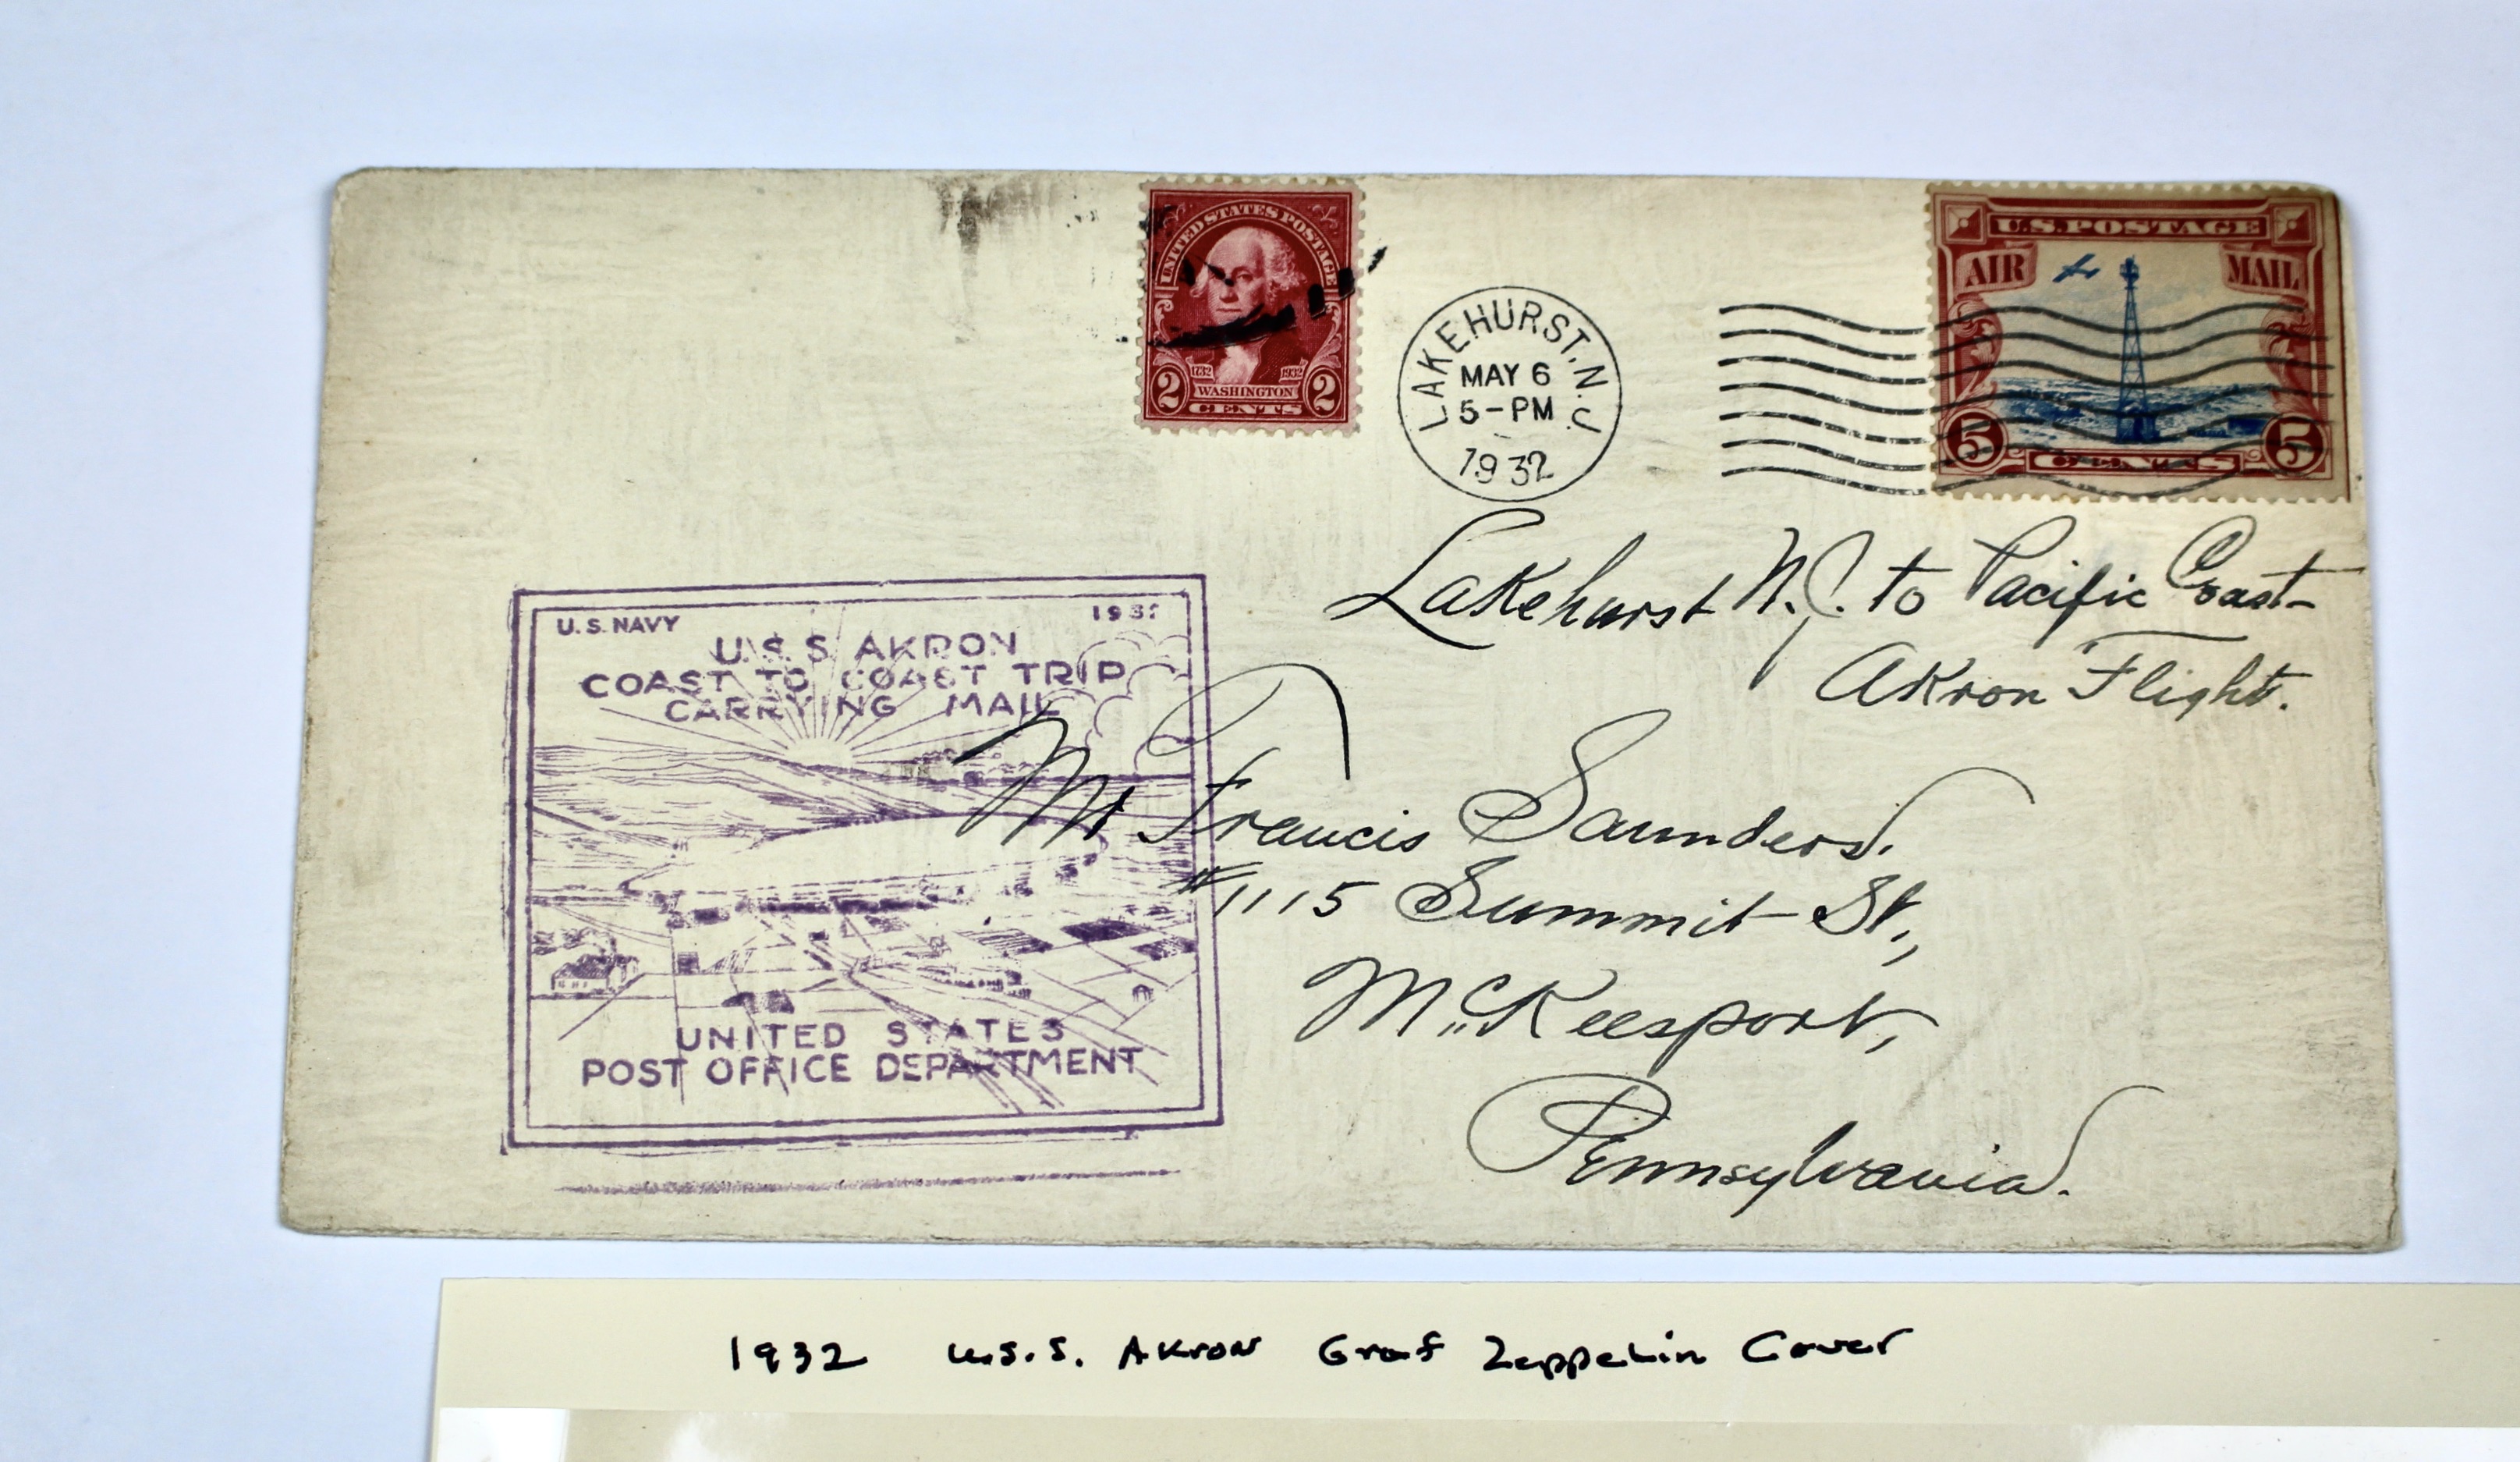 UNITED STATES POSTAGE
1732 1932
WASHINGTON
2 CENTS 2
LAKEHURST, N.J.
MAY 6
5-PM
1932
U.S. POSTAGE
AIR MAIL
5 CENTS 5
Lakehurst N.J. to Pacific Coast-
Akron Flight.
U.S. NAVY 1932
U.S.S. AKRON
COAST TO COAST TRIP
CARRYING MAIL
UNITED STATES
POST OFFICE DEPARTMENT
Mr Francis Saunders.
#1115 Summit St.,
McKeesport,
Pennsylvania.
1932 U.S.S. Akron Graf Zeppelin Cover